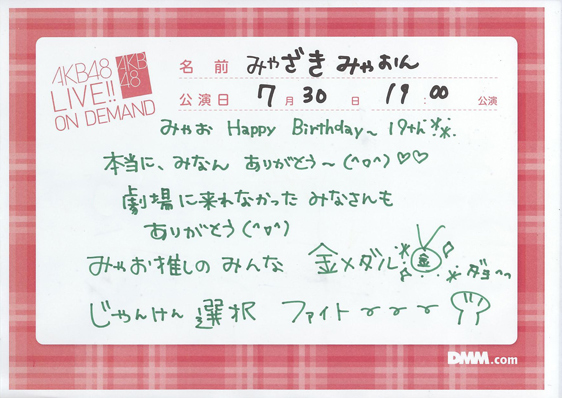 AKB48
LIVE!!
ON DEMAND
AKB
48
名前 みゃざき みゃおん
公演日 7月30日 19:00 公演
みゃお Happy Birthday~ 19th
本当に、みなん ありがとう~(^o^)♡♡
劇場に来れなかった みなさんも
ありがとう(^o^)
みゃお推しの みんな 金メダル 金 ダヨ
じゃんけん 選択 ファイト
DMM.com